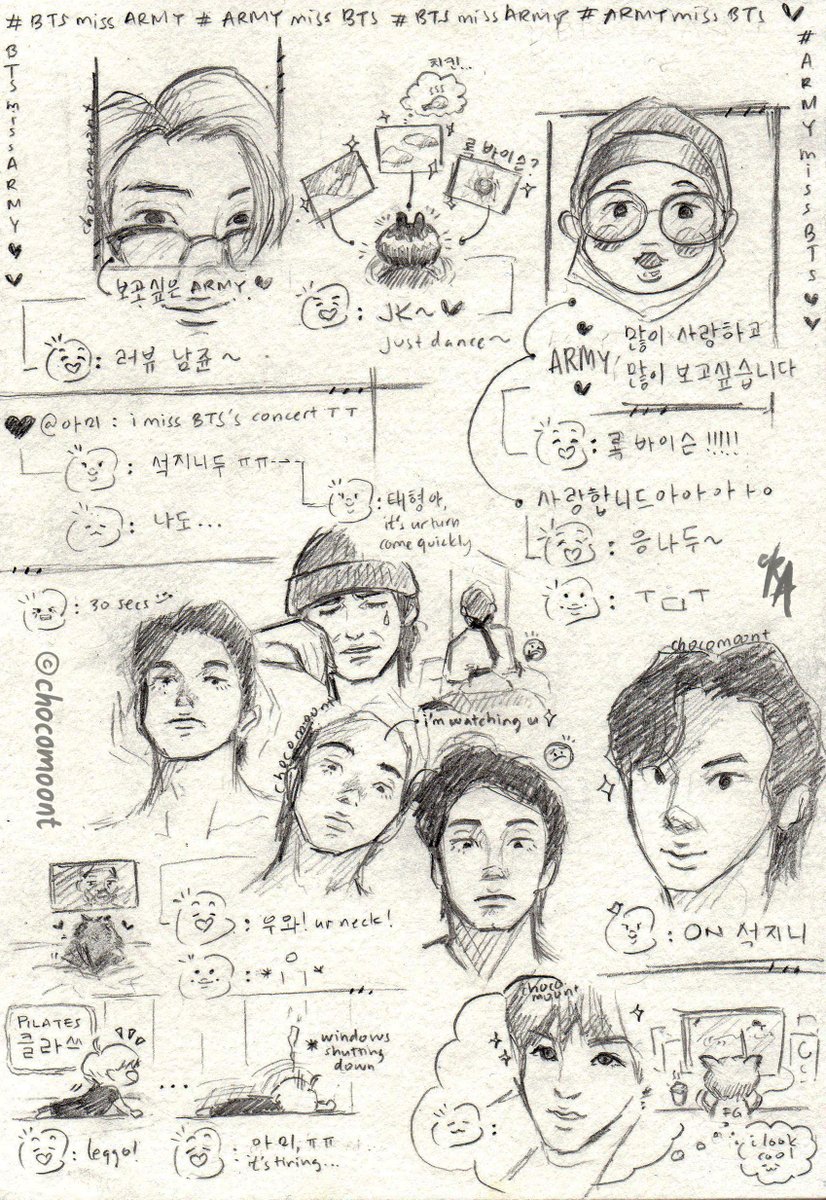 # BTS miss ARMY # ARMY miss BTS # BTS miss ARMY # ARMY miss BTS
BTS miss ARMY
# ARMY miss BTS
chocomoont
지킨...
록 바이슨?
보고싶은 ARMY.
: 러뷰 남쥰~
: JK~
just dance~
ARMY,
많이 사랑하고
많이 보고싶습니다
@아미 : i miss BTS's concert ㅜㅜ
: 석지니두 ㅠㅠ
: 나도...
: 태형아,
it's ur turn
come quickly
: 록 바이슨 !!!!!
사랑합니드아아아ㅏㅇ
: 응 나두~
: ㅜ스ㅜ
: 30 secs
©chocomoont
chocomoont
i'm watching u
chocomoont
: 우와! ur neck!
: ON 석지니
PILATES
클라쓰
...
*windows
shutting
down
: leggo!
: 아미, ㅠㅠ
it's tiring...
choco
moont
:
FG
i look
cool